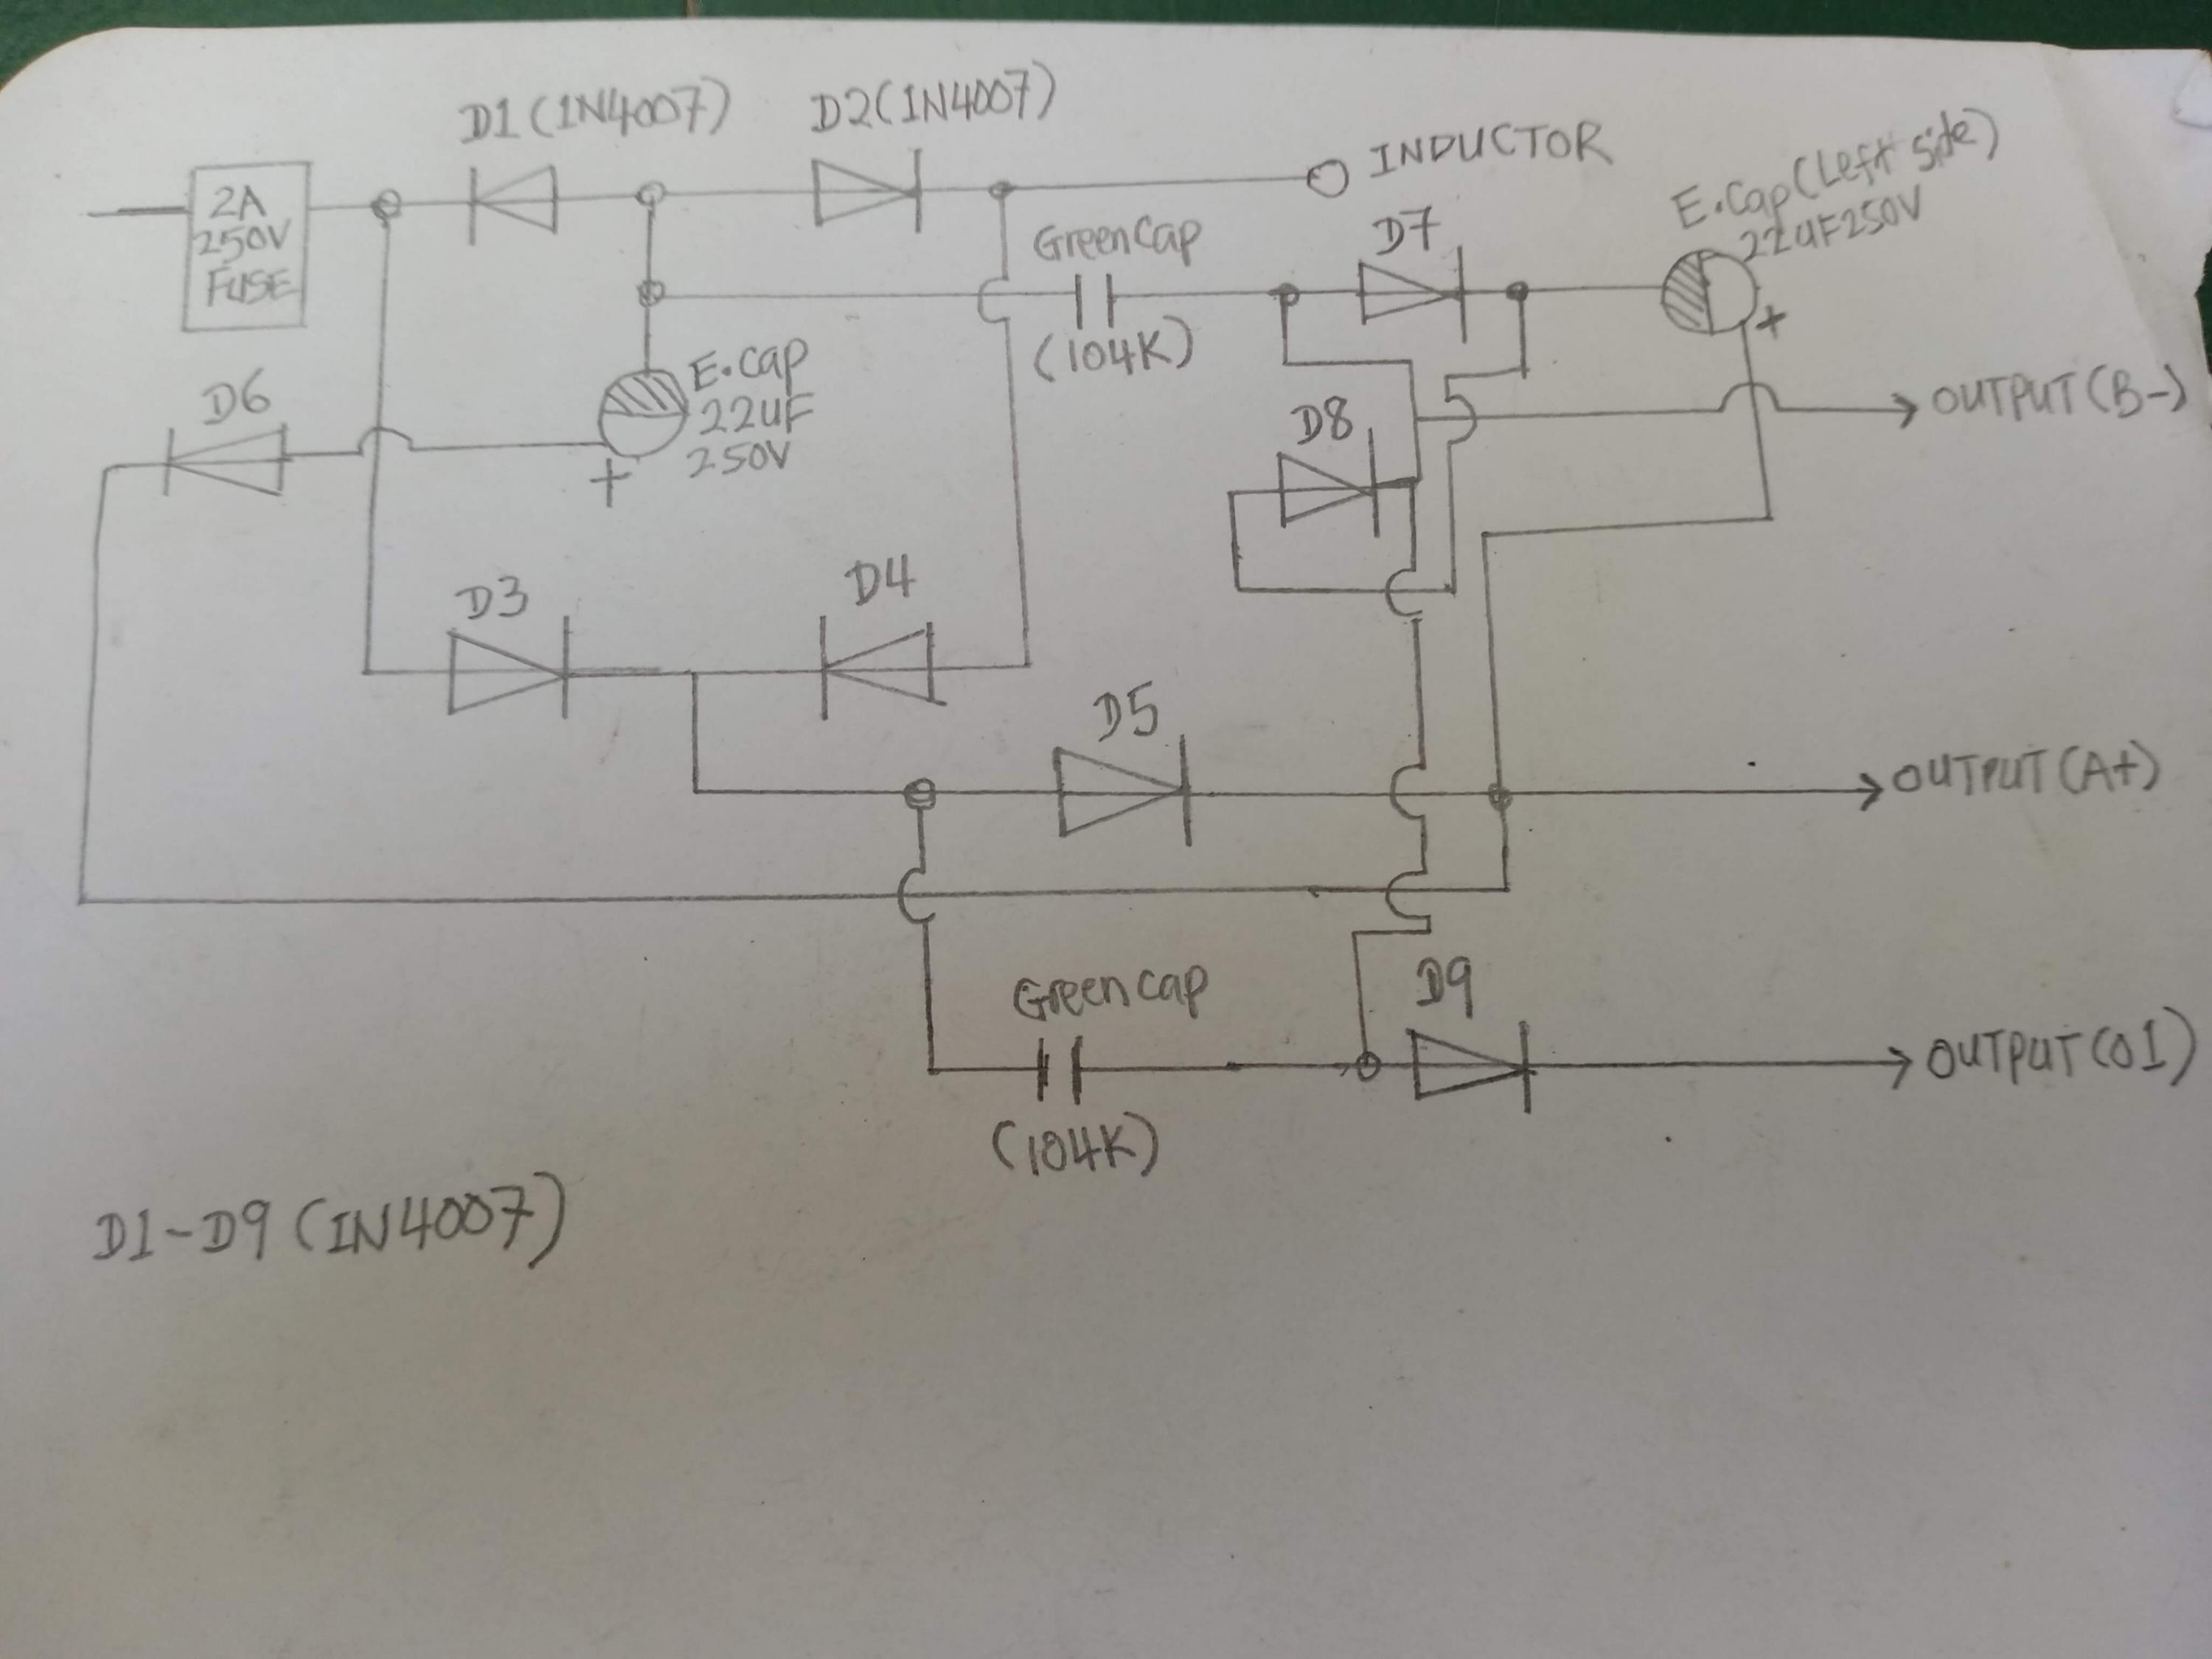 D1(1N4007)
D2(1N4007)
INDUCTOR
E.Cap(Left Side)
22uF250V
2A
250V
FUSE
GreenCap
(104K)
D7
E.cap
22uF
250V
+
+
D6
OUTPUT(B-)
D8
D3
D4
D5
OUTPUT(A+)
Green cap
(104K)
D9
OUTPUT(01)
D1-D9(IN4007)